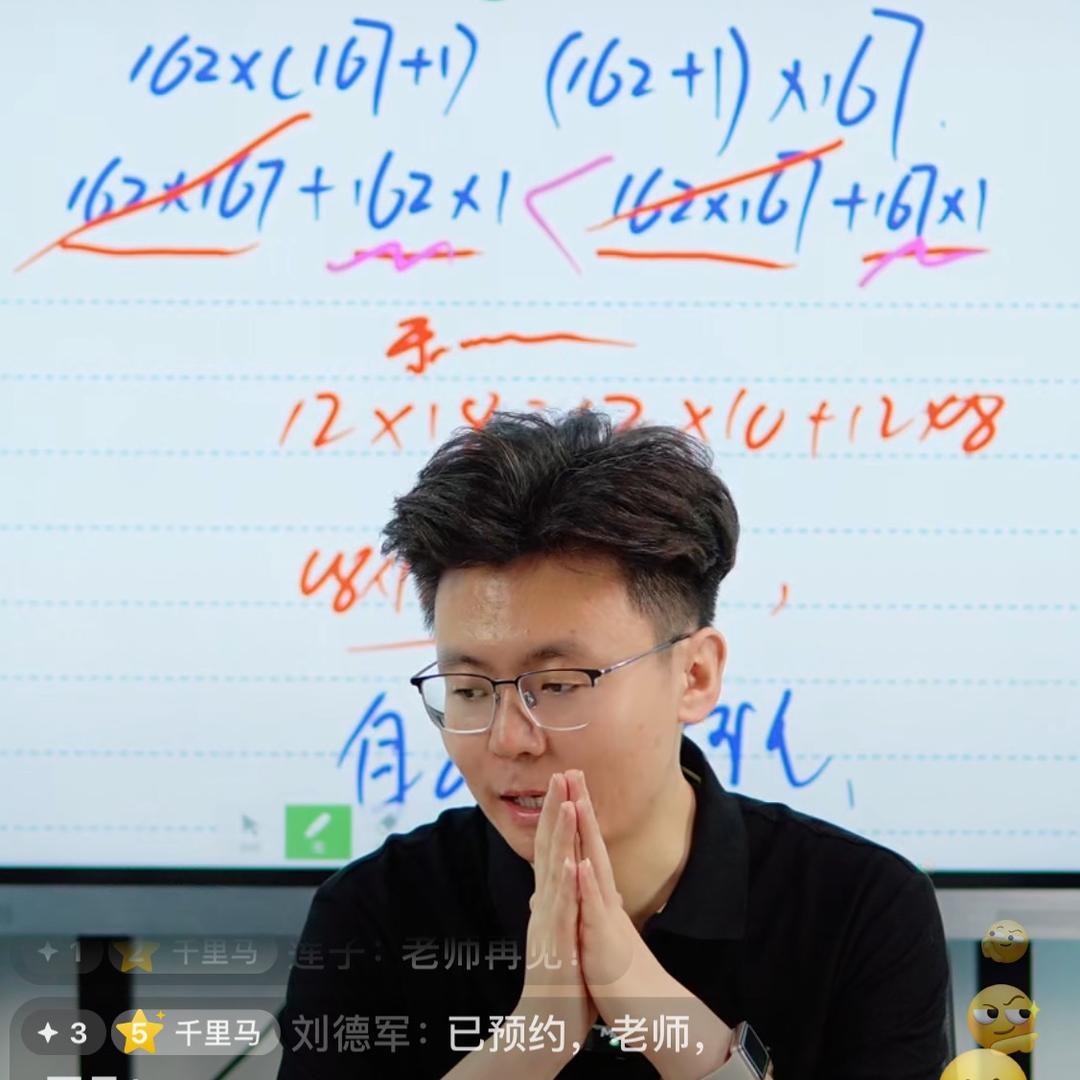 162×(167+1) (162+1)×167
162×167+162×1 < 162×167+167×1
12×18 12×10+12×08
08个
自
+1 2 千里马 莲子：老师再见！
+3 5 千里马 刘德军：已预约，老师，